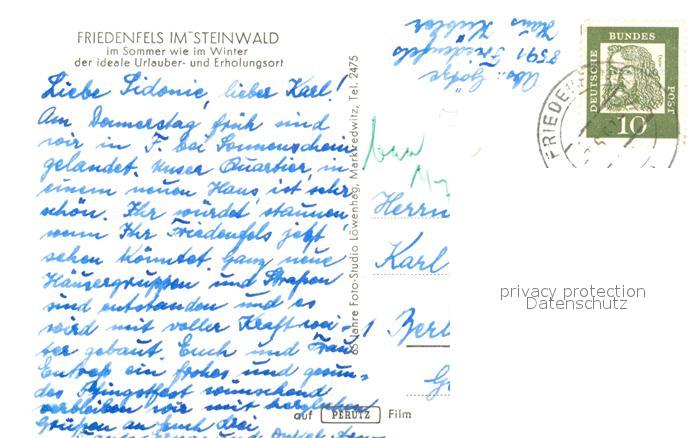 FRIEDENFELS IM STEINWALD
im Sommer wie im Winter
der ideale Urlauber- und Erholungsort
Liebe Sidonie, lieber Karl!
Am Donnerstag früh sind
wir in F. bei Sonnenschein
gelandet. Unser Quartier in
einem neuen Haus ist sehr
schön. Ihr würdet staunen
wenn Ihr Friedenfels jetzt
sehen könntet. Ganz neue
Häusergruppen und Straßen
sind entstanden und es
wird mit voller Kraft wei-
ter gebaut. Euch und Frau
ein frohes und gesun-
des Pfingstfest wünschend
verbleiben wir mit herzlichen
Grüßen an Euch drei,
und
65 Jahre Foto-Studio Löwenhag, Marktredwitz, Tel. 2475
auf PERUTZ Film
Abs:
8591 Friedenfels
Haus
DEUTSCHE BUNDES POST
10
FRIEDEN
Herrn
Karl
1 Berl
privacy protection
Datenschutz